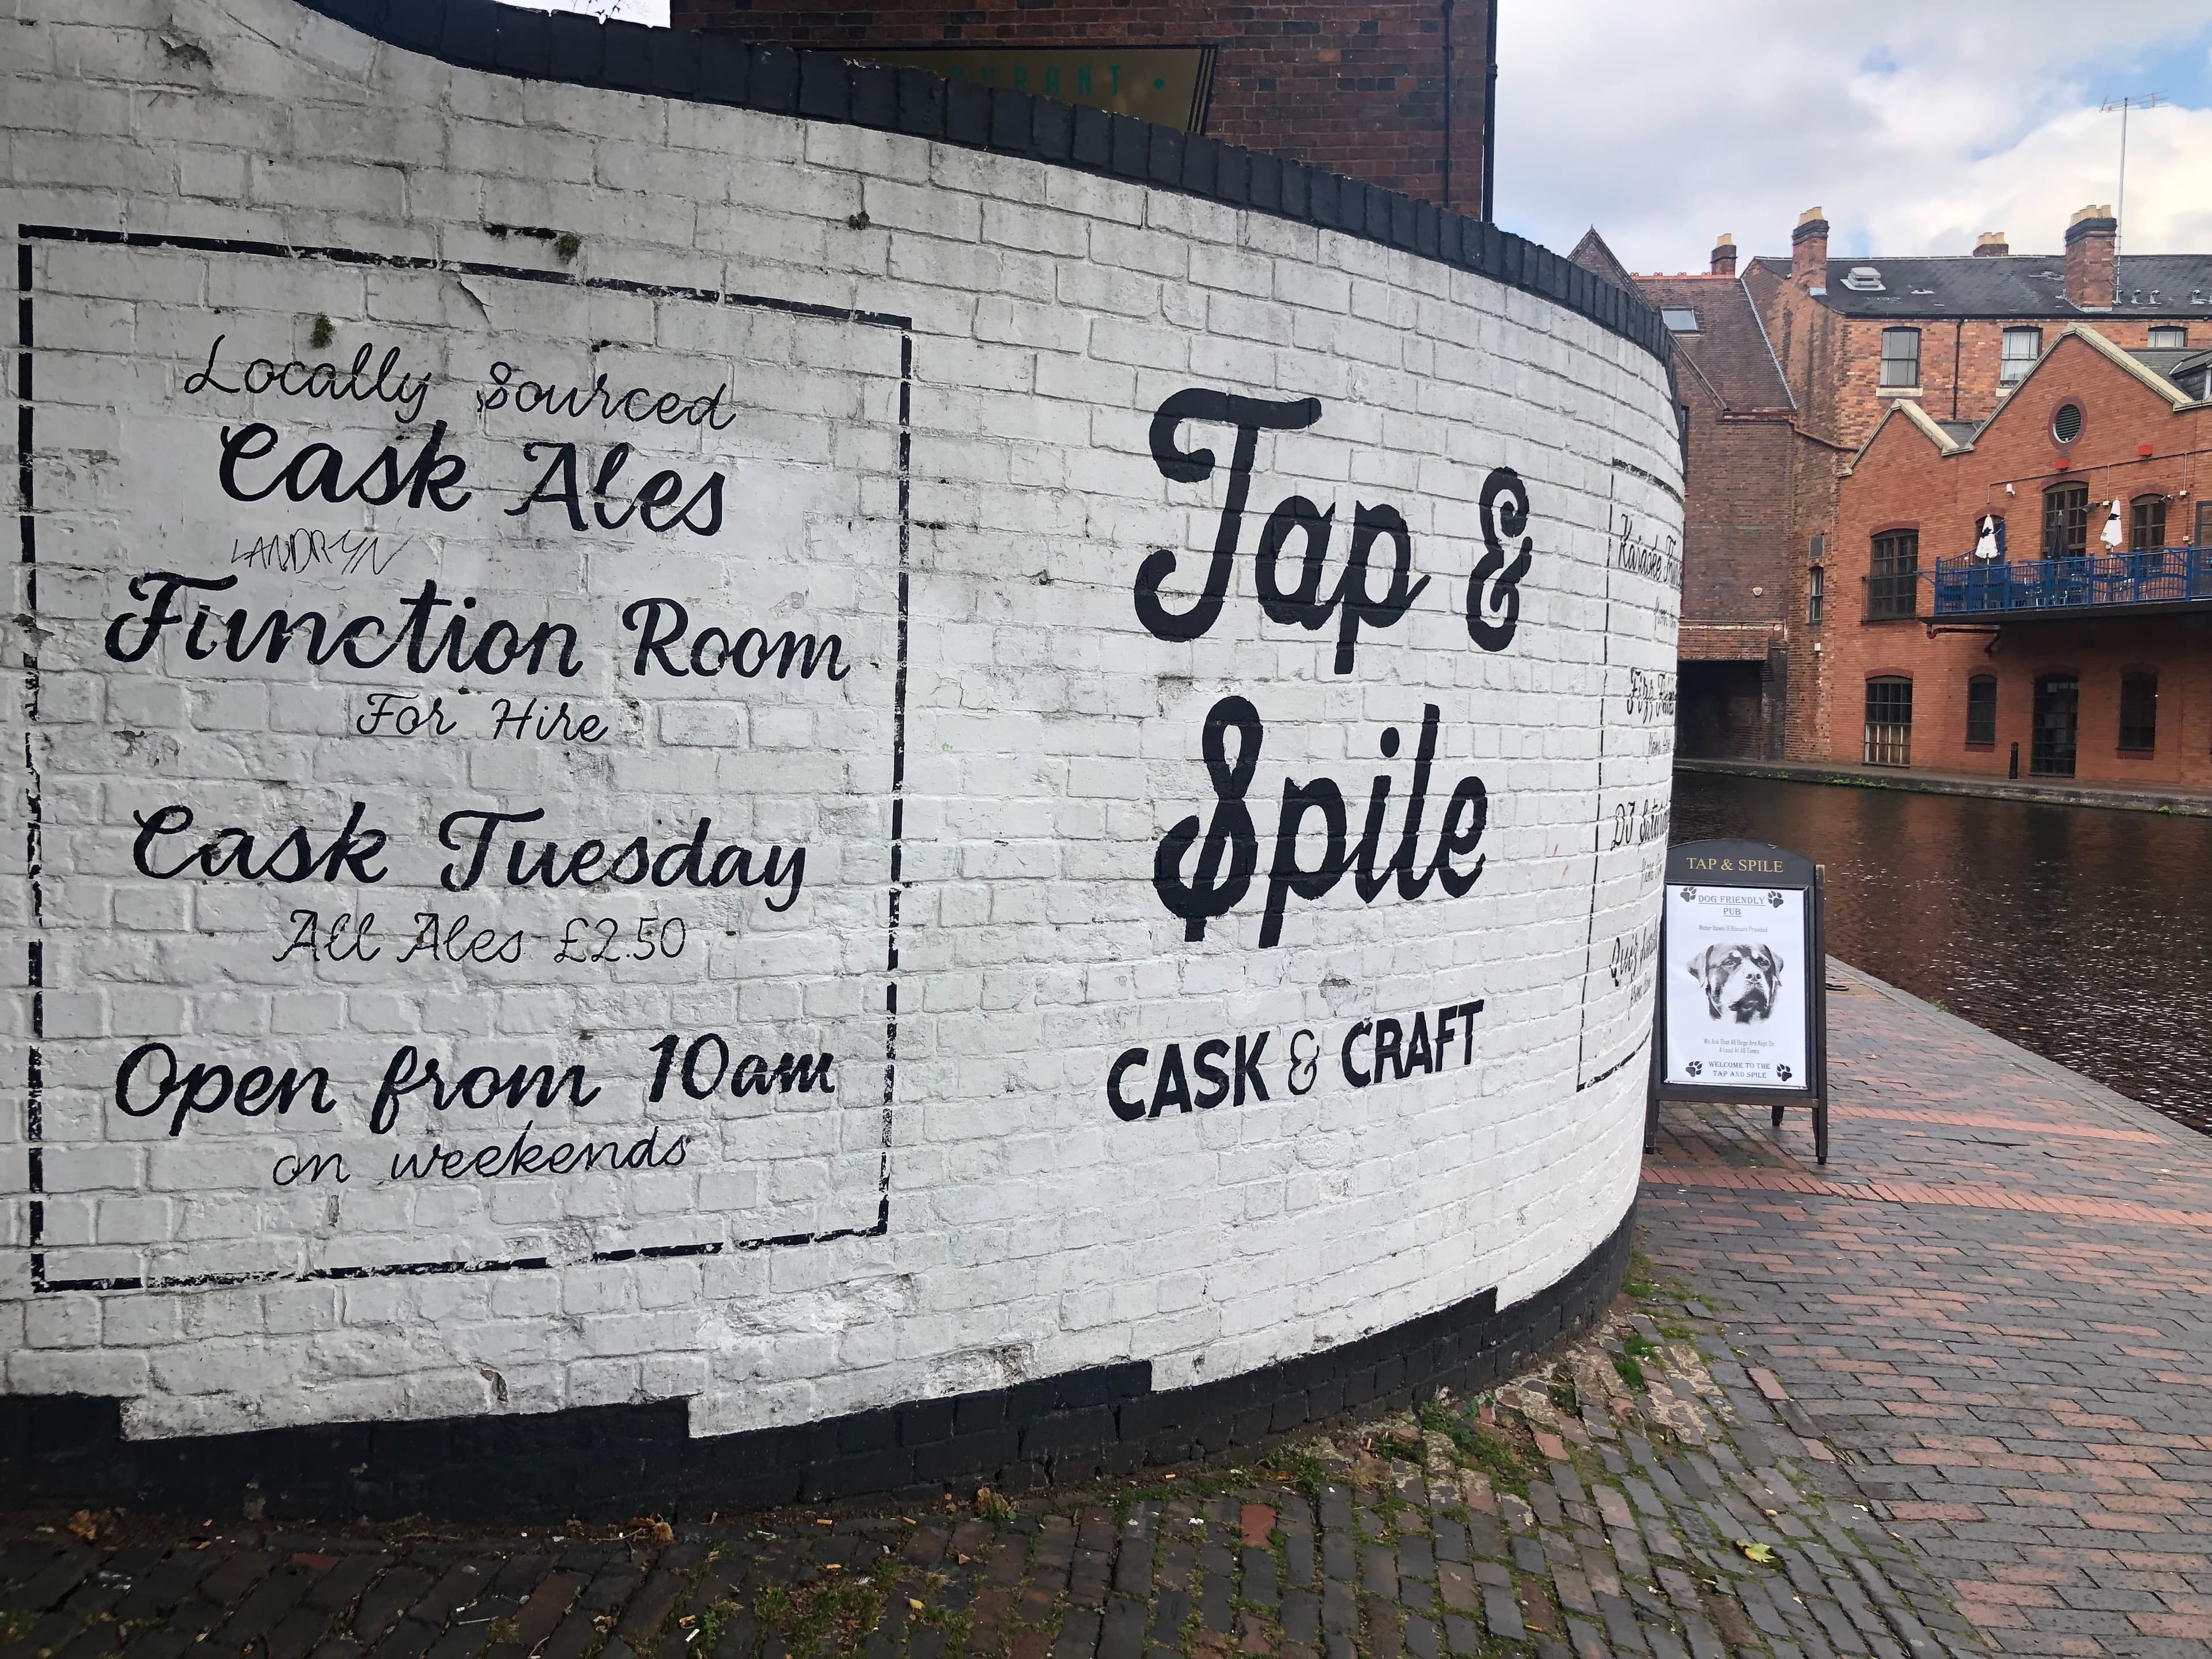 Locally Sourced
Cask Ales
LANDRYN
Function Room
For Hire
Cask Tuesday
All Ales £2.50
Open from 10am
on weekends
Tap &
Spile
CASK & CRAFT
TAP & SPILE
DOG FRIENDLY
PUB
Water Bowls & Biscuits Provided
We Ask That All Dogs Are Kept On
A Lead At All Times
WELCOME TO THE
TAP AND SPILE